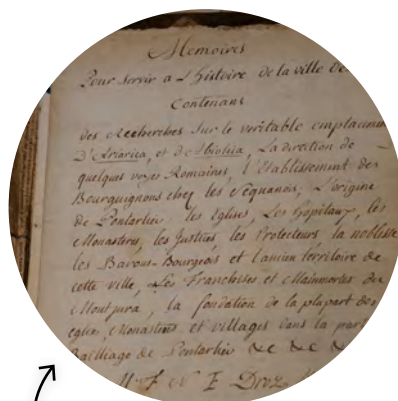 Memoires
Pour servir a L'histoire de la ville de
Contenans
des Recherches Sur le veritable emplacemen
D'Ariarica, et de Abiolica, La direction de
quelques voyes Romaines, l'Etablissement des
Bourguignons chez les Sequanois, L'origine
de Pontarlier, les Eglises, Les hopitaux, les
Monasteres, les Justices, les Protecteurs la noblesse
les Barons-Bourgeois et l'ancien territoire de
cette ville, Les Franchises et Mainmortes du
Montjura, la fondation de la plupart des
eglises, Monasteres et villages dans la part
Bailliage de Pontarlier &c &c &c
F N E Droz